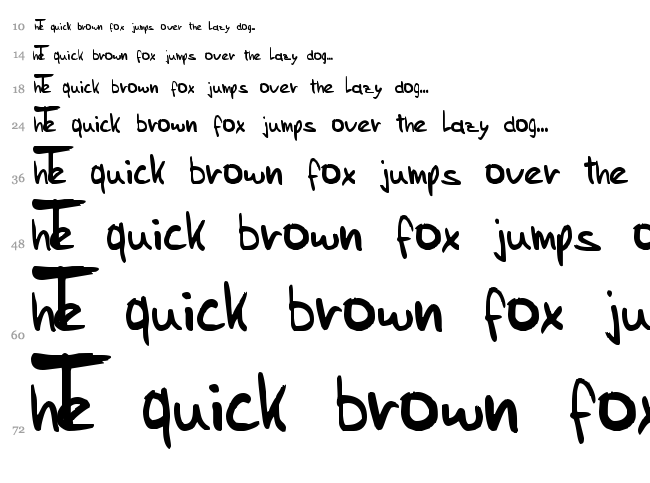 10 The quick brown fox jumps over the Lazy dog...
14 The quick brown fox jumps over the Lazy dog...
18 The quick brown fox jumps over the Lazy dog...
24 The quick brown fox jumps over the Lazy dog...
36 The quick brown fox jumps over the
48 The quick brown fox jumps o
60 The quick brown fox ju
72 The quick brown fox